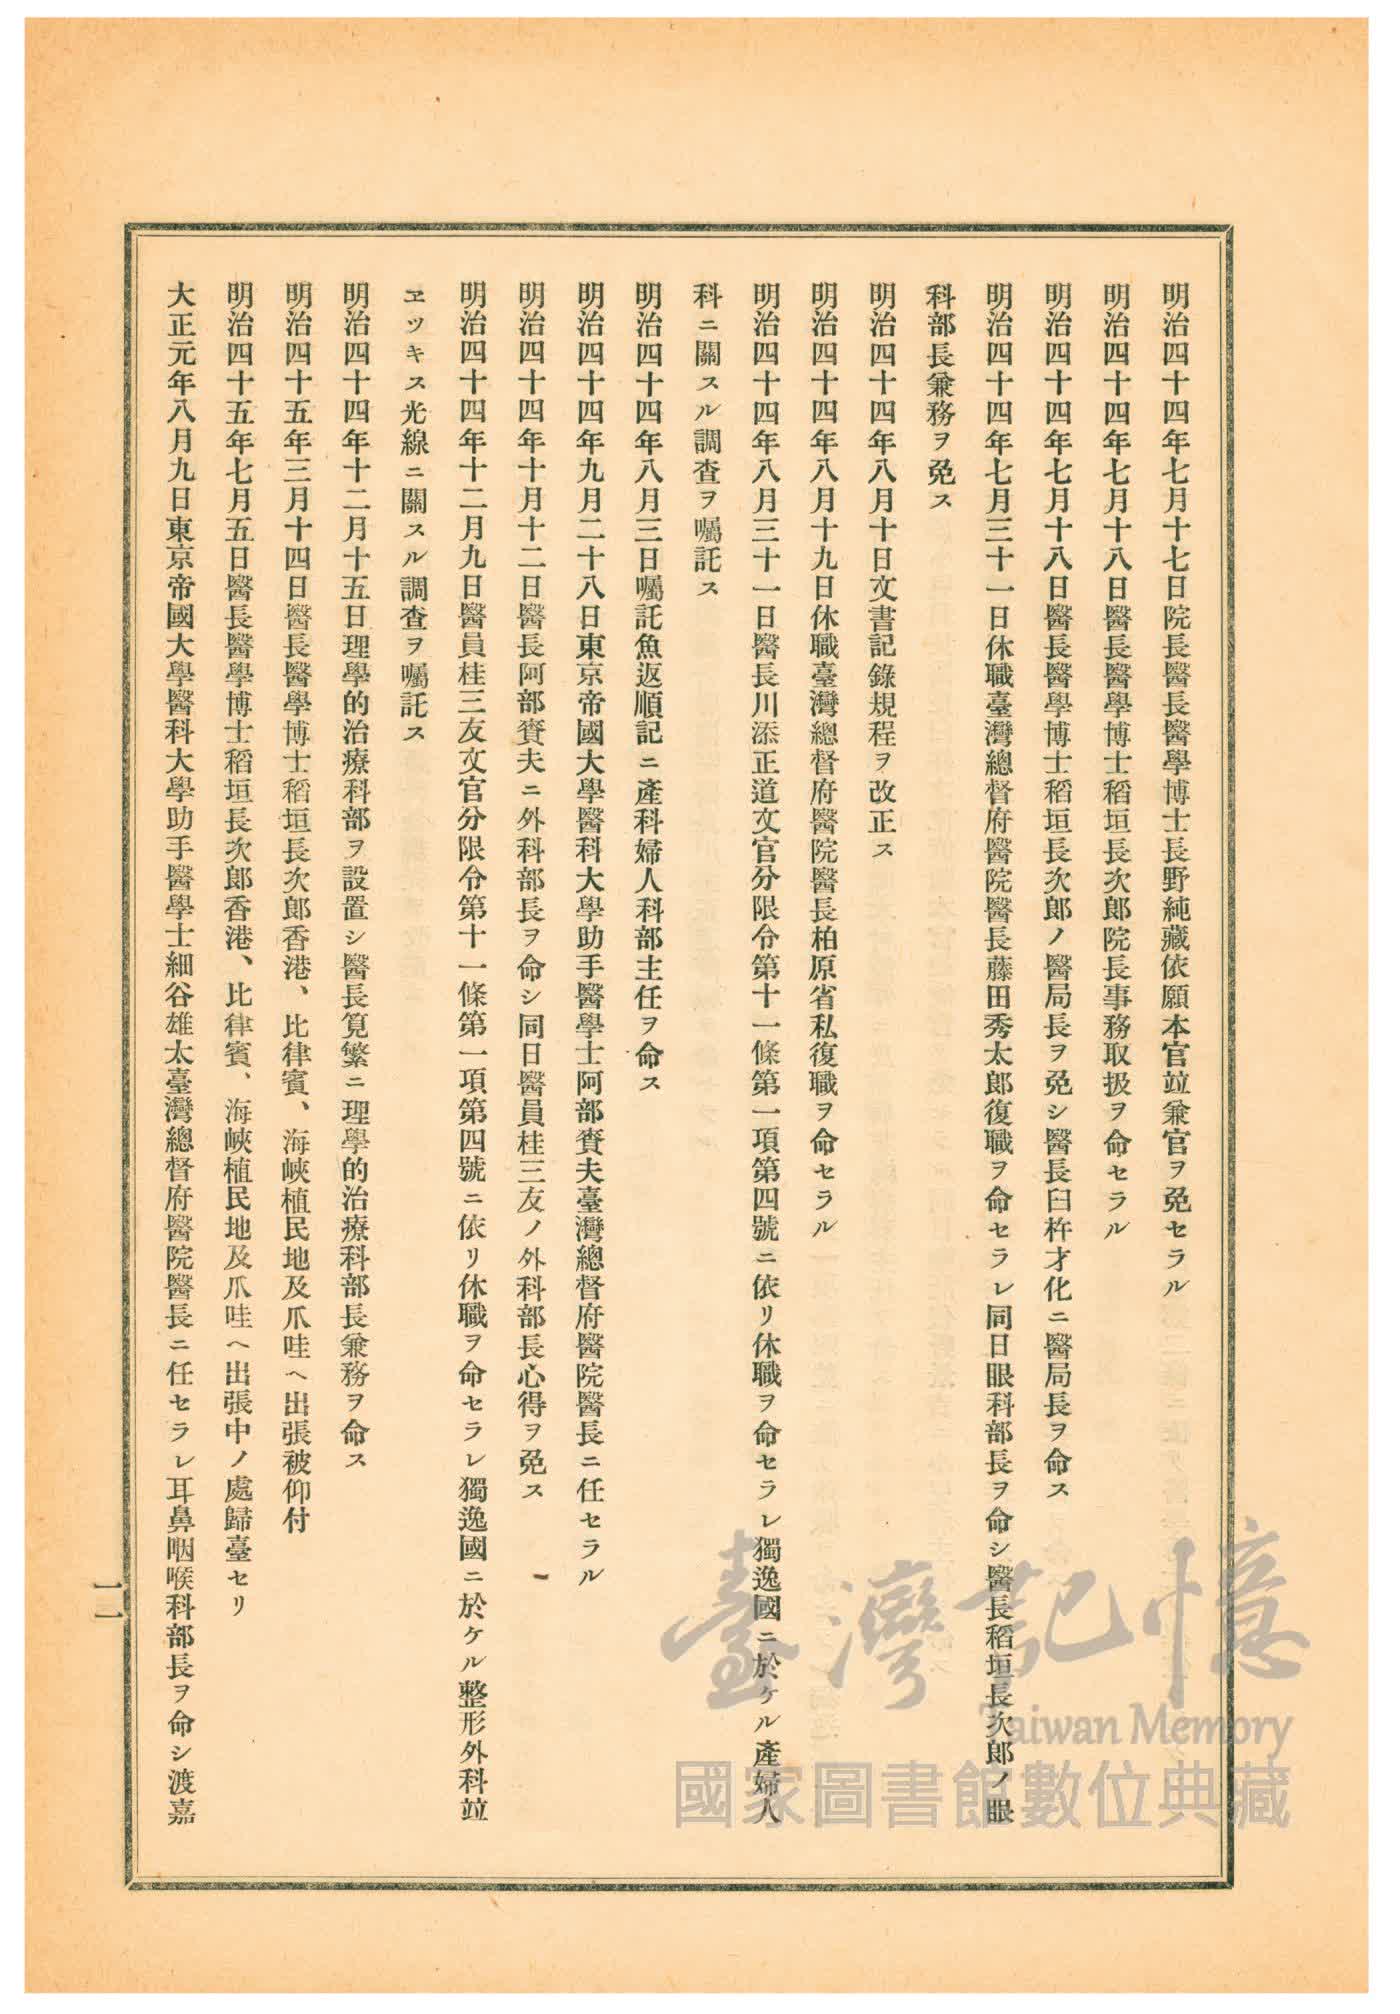 明治四十四年七月十七日院長醫長醫學博士長野純藏依願本官竝兼官ヲ免セラル
明治四十四年七月十八日醫長醫學博士稻垣長次郎院長事務取扱ヲ命セラル
明治四十四年七月十八日醫長醫學博士稻垣長次郎ノ醫局長ヲ免シ醫長臼杵才化ニ醫局長ヲ命ス
明治四十四年七月三十一日休職臺灣總督府醫院醫長藤田秀太郎復職ヲ命セラレ同日眼科部長ヲ命シ醫長稻垣長次郎ノ眼
科部長兼務ヲ免ス
明治四十四年八月十日文書記錄規程ヲ改正ス
明治四十四年八月十九日休職臺灣總督府醫院醫長柏原省私復職ヲ命セラル
明治四十四年八月三十一日醫長川添正道文官分限令第十一條第一項第四號ニ依リ休職ヲ命セラレ獨逸國ニ於ケル產婦人
科ニ關スル調查ヲ囑託ス
明治四十四年八月三日囑託魚返順記ニ產科婦人科部主任ヲ命ス
明治四十四年九月二十八日東京帝國大學醫科大學助手醫學士阿部賚夫臺灣總督府醫院醫長ニ任セラル
明治四十四年十月十二日醫長阿部賚夫ニ外科部長ヲ命シ同日醫員桂三友ノ外科部長心得ヲ免ス
明治四十四年十二月九日醫員桂三友文官分限令第十一條第一項第四號ニ依リ休職ヲ命セラレ獨逸國ニ於ケル整形外科竝
ヱツキス光線ニ關スル調查ヲ囑託ス
明治四十四年十二月十五日理學的治療科部ヲ設置シ醫長筧繁ニ理學的治療科部長兼務ヲ命ス
明治四十五年三月十四日醫長醫學博士稻垣長次郎香港、比律賓、海峽植民地及爪哇ヘ出張被仰付
明治四十五年七月五日醫長醫學博士稻垣長次郎香港、比律賓、海峽植民地及爪哇ヘ出張中ノ處歸臺セリ
大正元年八月九日東京帝國大學醫科大學助手醫學士細谷雄太臺灣總督府醫院醫長ニ任セラレ耳鼻咽喉科部長ヲ命シ渡嘉
一一
臺灣記憶
Taiwan Memory
國家圖書館數位典藏